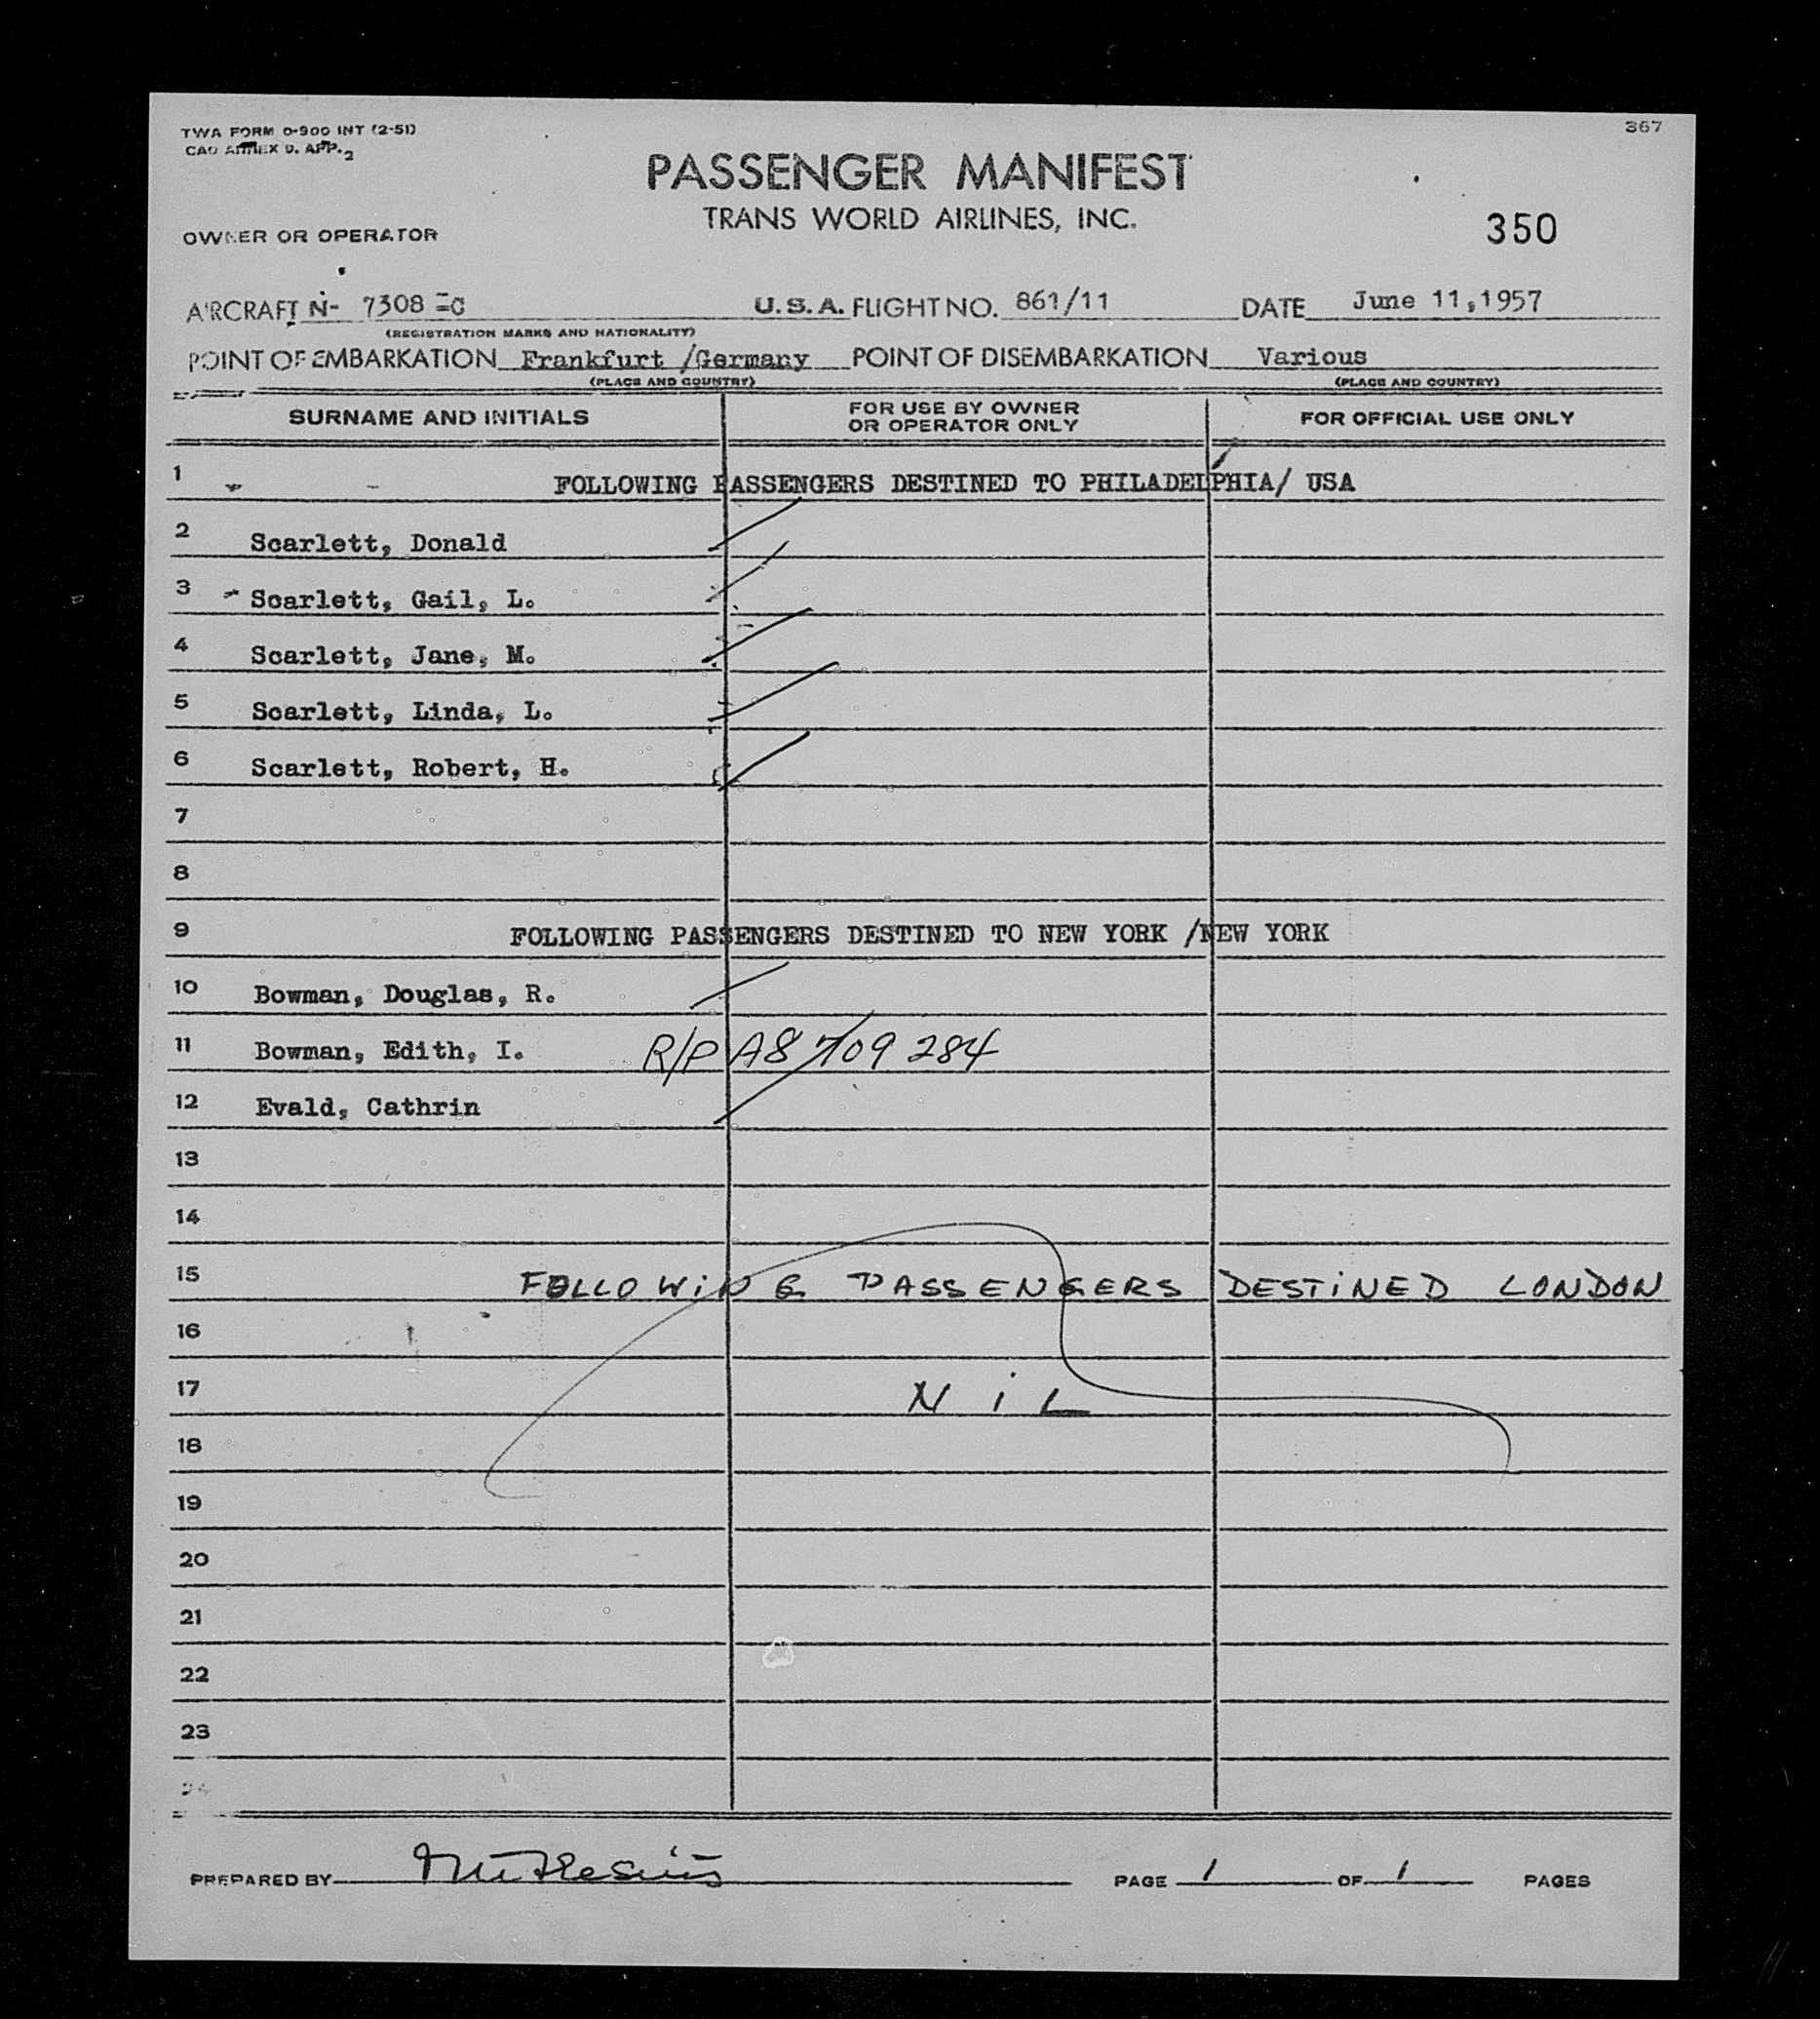 TWA FORM 0-900 INT (2-51)
CAO ANNEX 9. APP. 2
367
PASSENGER MANIFEST
TRANS WORLD AIRLINES, INC.
350
OWNER OR OPERATOR
AIRCRAFT N- 7308 =C U.S.A. FLIGHT NO. 861/11 DATE June 11,1957
(REGISTRATION MARKS AND NATIONALITY)
POINT OF EMBARKATION Frankfurt /Germany POINT OF DISEMBARKATION Various
(PLACE AND COUNTRY) (PLACE AND COUNTRY)
SURNAME AND INITIALS FOR USE BY OWNER OR OPERATOR ONLY FOR OFFICIAL USE ONLY
1 FOLLOWING PASSENGERS DESTINED TO PHILADELPHIA/ USA
2 Scarlett, Donald
3 Scarlett, Gail, L.
4 Scarlett, Jane, M.
5 Scarlett, Linda, L.
6 Scarlett, Robert, H.
7
8
9 FOLLOWING PASSENGERS DESTINED TO NEW YORK /NEW YORK
10 Bowman, Douglas, R.
11 Bowman, Edith, I. R/P A8 709 284
12 Evald, Cathrin
13
14
15 FOLLOWING PASSENGERS DESTINED LONDON
16
17 NiL
18
19
20
21
22
23
24
PREPARED BY PAGE 1 OF 1 PAGES